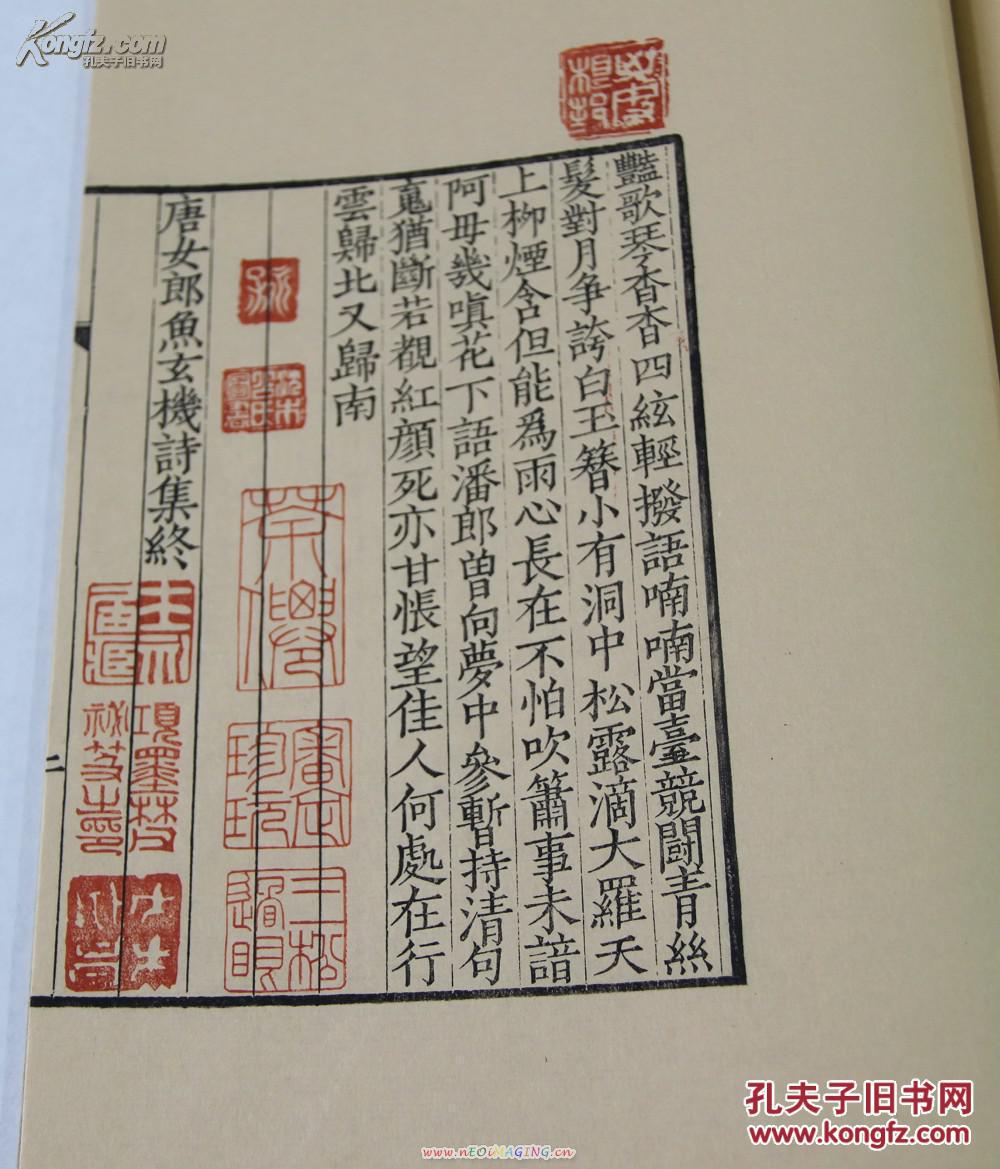 豔歌琴杳杳四絃輕撥語喃喃當臺競鬬青絲
髮對月爭誇白玉簪小有洞中松露滴大羅天
上柳煙含但能爲雨心長在不怕吹簫事未諳
阿母幾嗔花下語潘郎曾向夢中參暫持清句
䰟猶斷若覩紅顏死亦甘悵望佳人何處在行
雲歸北又歸南
唐女郎魚玄機詩集終
二
項墨林
祕笈之印
Kongfz.com
孔夫子旧书网
孔夫子旧书网
www.kongfz.com
www.nEOiMAGING.cn